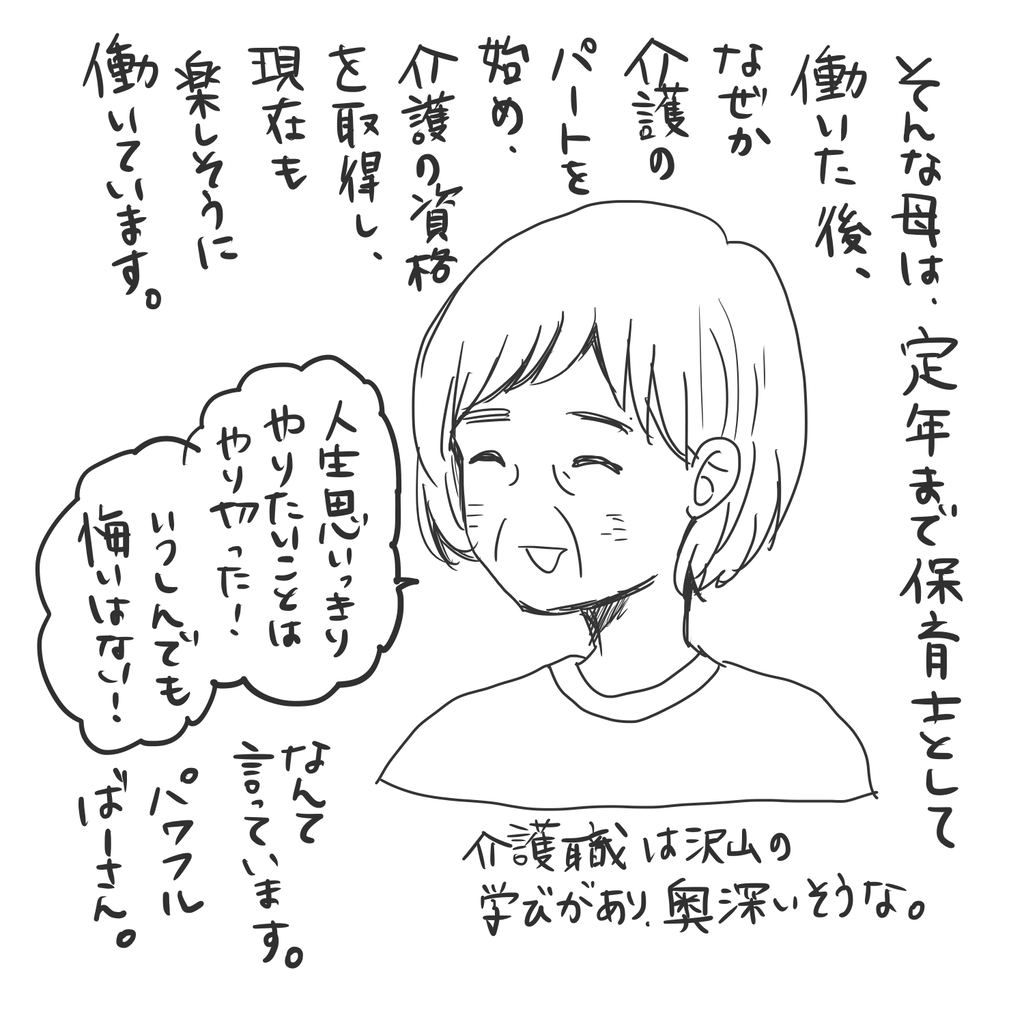 そんな母は、定年まで保育士として
働いた後、
なぜか
介護の
パートを
始め、
介護の資格
を取得し、
現在も
楽しそうに
働いています。
人生思いっきり
やりたいことは
やり切った!
いつしんでも
悔いはない!
なんて
言っています。
パワフル
ばーさん。
介護職は沢山の
学びがあり、奥深いそうな。